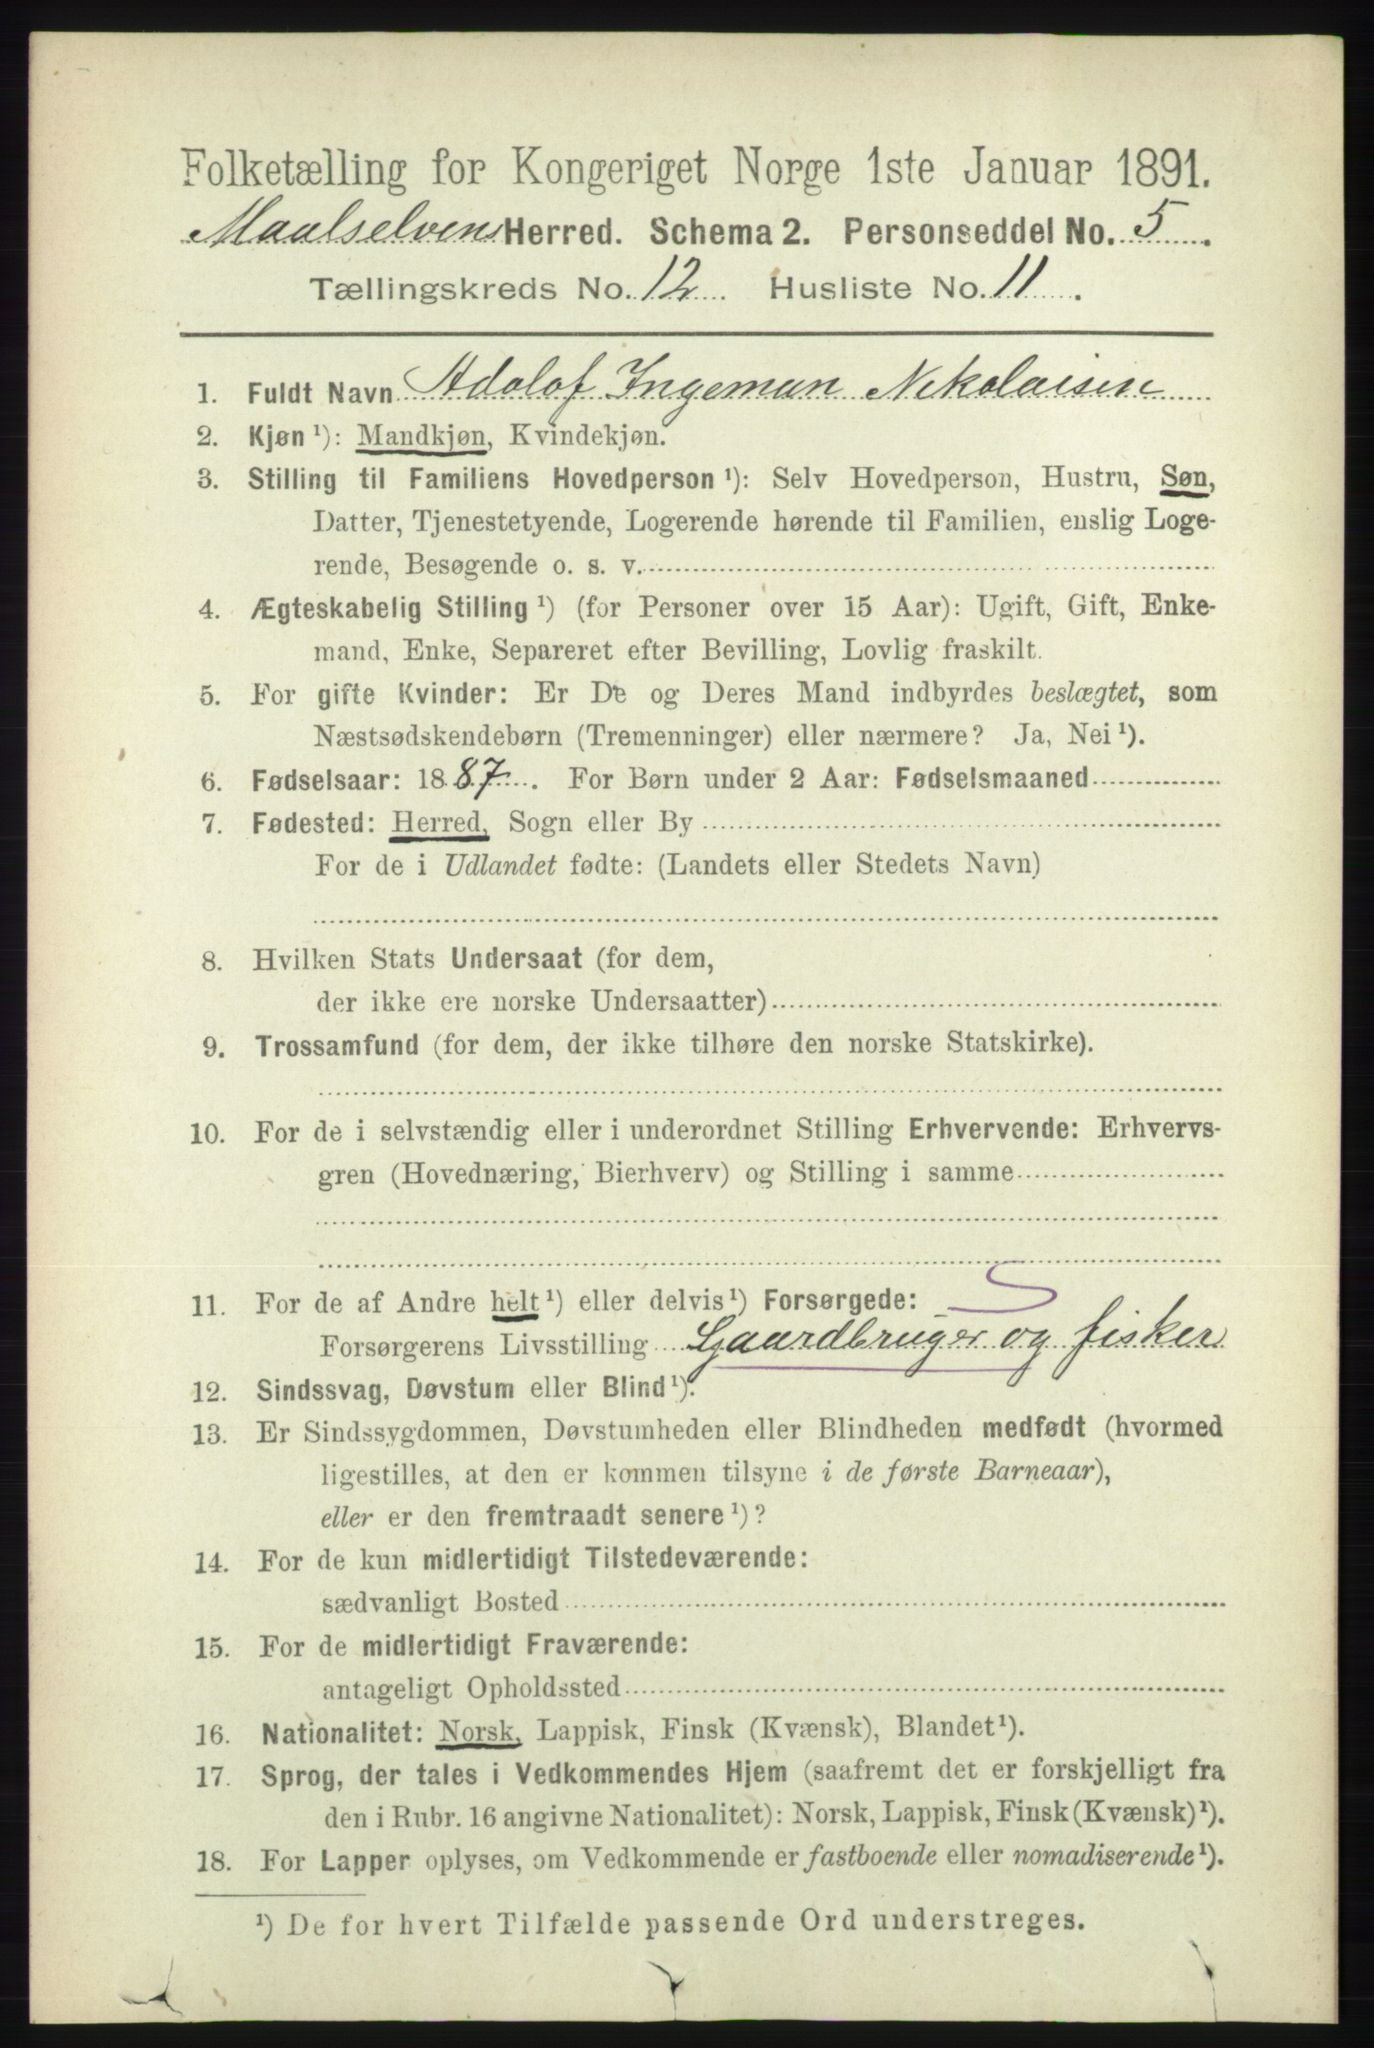 Folketælling for Kongeriget Norge 1ste Januar 1891.
Maalselvens Herred. Schema 2. Personseddel No. 5.
Tællingskreds No. 12. Husliste No. 11.
1. Fuldt Navn Adolof Ingeman Nekolaisen
2. Kjøn ¹): Mandkjøn, Kvindekjøn.
3. Stilling til Familiens Hovedperson ¹): Selv Hovedperson, Hustru, Søn,
Datter, Tjenestetyende, Logerende hørende til Familien, enslig Loge-
rende, Besøgende o. s. v.
4. Ægteskabelig Stilling ¹) (for Personer over 15 Aar): Ugift, Gift, Enke-
mand, Enke, Separeret efter Bevilling, Lovlig fraskilt.
5. For gifte Kvinder: Er De og Deres Mand indbyrdes beslægtet, som
Næstsødskendebørn (Tremenninger) eller nærmere? Ja, Nei ¹).
6. Fødselsaar: 1887. For Børn under 2 Aar: Fødselsmaaned
7. Fødested: Herred, Sogn eller By
For de i Udlandet fødte: (Landets eller Stedets Navn)
8. Hvilken Stats Undersaat (for dem,
der ikke ere norske Undersaatter)
9. Trossamfund (for dem, der ikke tilhøre den norske Statskirke).
10. For de i selvstændig eller i underordnet Stilling Erhvervende: Erhvervs-
gren (Hovednæring, Bierhverv) og Stilling i samme
11. For de af Andre helt ¹) eller delvis ¹) Forsørgede:
Forsørgerens Livsstilling Gaardbruger og fisker
12. Sindssvag, Døvstum eller Blind ¹).
13. Er Sindssygdommen, Døvstumheden eller Blindheden medfødt (hvormed
ligestilles, at den er kommen tilsyne i de første Barneaar),
eller er den fremtraadt senere ¹)?
14. For de kun midlertidigt Tilstedeværende:
sædvanligt Bosted
15. For de midlertidigt Fraværende:
antageligt Opholdssted
16. Nationalitet: Norsk, Lappisk, Finsk (Kvænsk), Blandet ¹).
17. Sprog, der tales i Vedkommendes Hjem (saafremt det er forskjelligt fra
den i Rubr. 16 angivne Nationalitet): Norsk, Lappisk, Finsk (Kvænsk) ¹).
18. For Lapper oplyses, om Vedkommende er fastboende eller nomadiserende ¹).
¹) De for hvert Tilfælde passende Ord understreges.